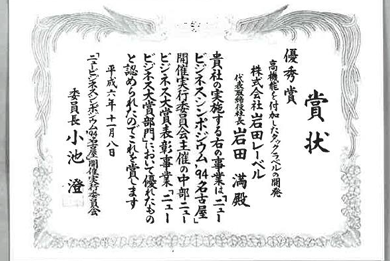 賞状
優秀賞
高機能を付加したタックラベルの開発
株式会社岩田レーベル
代表取締役社長 岩田 満 殿
貴社の実施する右の事業は「ニュー
ビジネスシンポジウム'94名古屋」
開催実行委員会主催の中部ニュー
ビジネス大賞表彰事業「ニュー
ビジネス大賞部門」において優れたもの
と認められたのでこれを賞します
平成六年十一月八日
ニュービジネスシンポジウム'94名古屋開催実行委員会
委員長 小池 澄